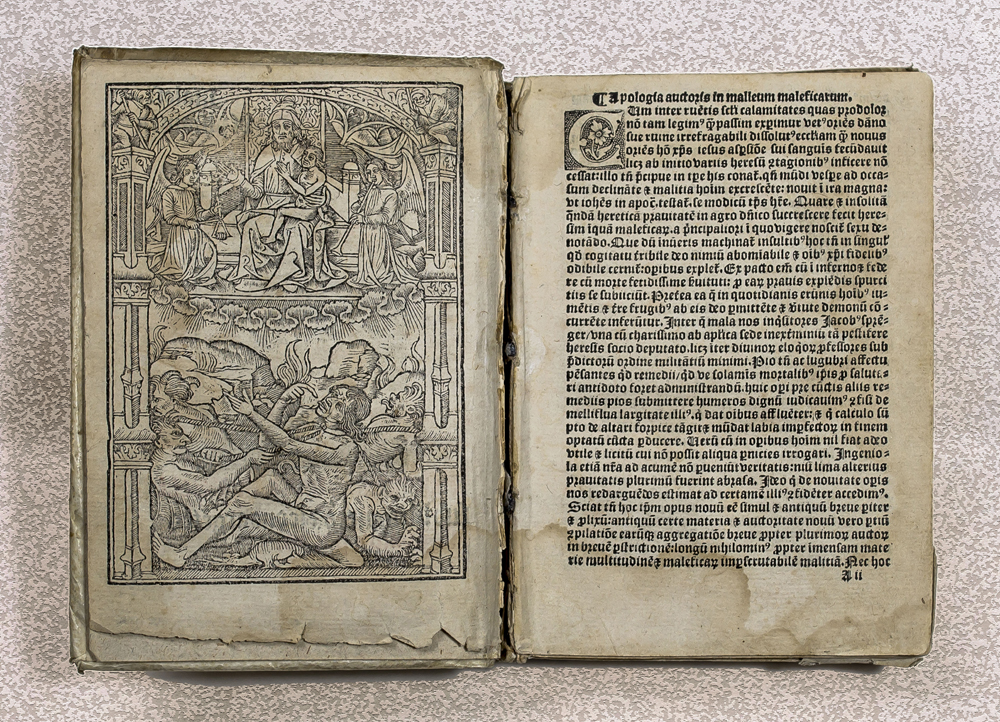 ¶Apologia auctoris in malleum maleficarum.
CUm inter ruētis scłi calamitates quas prodolor
nō tam legimꝰ ꝙ̄ passim expimur vetꝰ oriēs dāno
sue ruine irrefragabili dissolutꝰ ecc̄liam ꝙ̄ nouus
oriēs hō xp̄s iesus aspsiōe sui sanguis fecūdauit
licꝫ ab initio variis heresū ꝯtagionibꝰ inficere nō
cessat: illo tn̄ p̄cipue in tꝑe his conaꝉ. qn̄ mūdi vesꝑe ad occa-
sum declināte ⁊ malitia hoīm excrescēte: nouit ī ira magna:
vt iohēs in apoc̄. testaꝉ. se modicū tp̄s hr̄e. Quare ⁊ insolitā
qm̄dā heretica prauitatē in agro dn̄ico succrescere fecit here-
sim īquā maleficaꝝ. a p̄ncipaliori ī quo vigere nosciꝉ sexu de-
notādo. Que dū inūeris machinaꝉ insultibꝰ hoc tn̄ in singuꝉꝰ
qd̄ cogitatu tribile deo nimiū abomiabile ⁊ oībꝰ xp̄i fidelibꝰ
odibile cerniꝉ: oꝑibus expleꝉ. Ex pacto em̄ cū ī inferno ⁊ fede
re cū morte fetidissime ẜuituti: ꝓ eaꝝ prauis explēdis spurci
tiis se subiiciūt. Preꝉea ea q̄ in quotidianis erūnis hoībꝰ iu-
mētis ⁊ ꝉre frugibꝰ ab eis deo ꝑmittēte ⁊ ꝟtute demonū cō-
currēte inferūtur. Inter q̄ mala nos inq̄sitores Jacobꝰ sprē-
ger/vna cū charissimo ab aplīca sede in exꝉminiū tā pestifere
heresis socio deputato. licꝫ iter diuinoꝝ eloqoꝝ ꝓfessores sub
p̄dictoꝝ ordine militātiū minimi. Pio tn̄ ac lugubri affectu
pēsantes qd̄ remedii/qd̄ ve solamis mortalibꝰ ip̄is ꝓ saluta-
ri antidoto foret admīnistrandū. huic oꝑi p̄e cūctis aliis re-
mediis pios submittere humeros dignū iudicauimꝰ ꝯfisi de
melliflua largitate illiꝰ. q̄ dat oibus affluēter: ⁊ q̄ calculo sū
pto de altari forpice tāgit ⁊ mūdat labia imꝑfectoꝝ in finem
optatū cūcta ꝑducere. Uerū cū in oꝑibus hoīm nil fiat adeo
vtile ⁊ licitū cui nō possit aliqua ꝑnicies irrogari. Ingenio-
la etiā nr̄a ad acumē nō ꝑueniūt veritatis: nisi lima alterius
prauitatis plurimū fuerint abrasa. Ideo q̄ de nouitate oꝑis
nos redarguēdos estimat ad certamē illiꝰ ꝯfidēter accedimꝰ.
Sciat tn̄ hoc ip̄m opus nouū eē simul ⁊ antiquū breue ꝑiter
⁊ ꝓlixū: antiquū certe materia ⁊ auctoritate nouū vero ꝑtiū
ꝯpilatiōe earūqꝫ aggregatiōe breue ꝓpter plurimoꝝ auctoꝝ
in breuē ꝑstrictionē: longū nihilominꝰ ꝓpter imensam mate
rie multitudinē ⁊ maleficaꝝ imꝑscrutabilē malitiā. Nec hoc
A ii